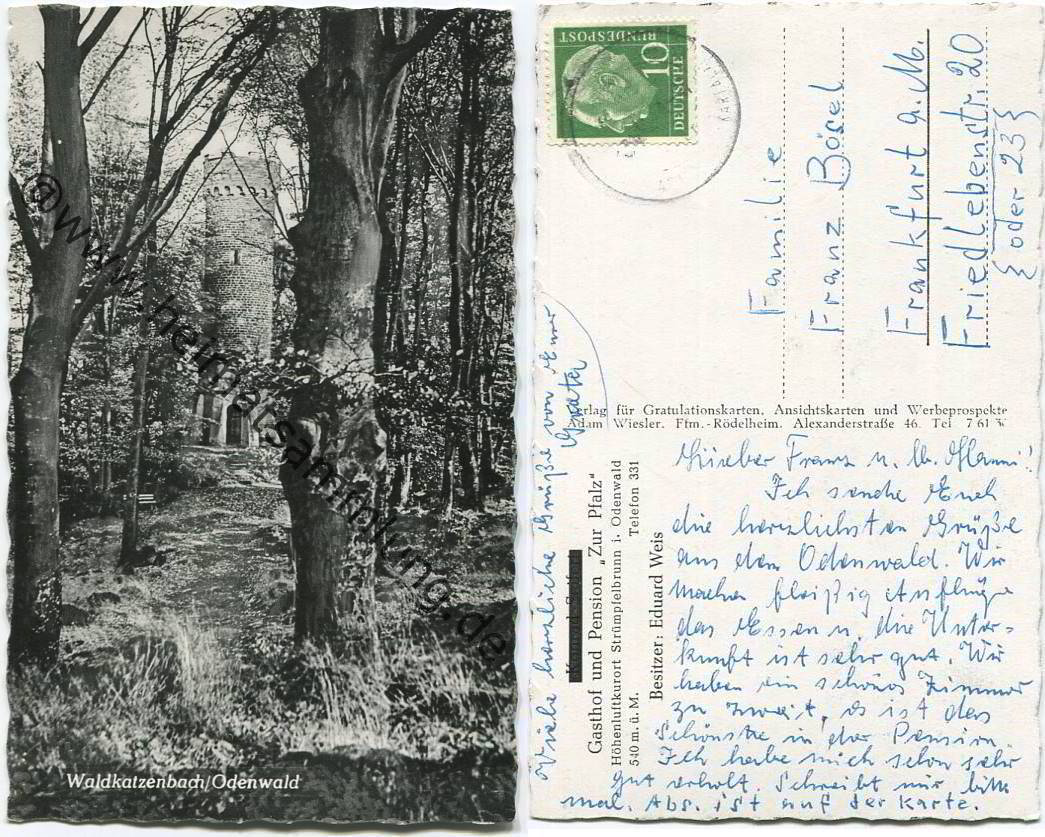 @www.heimatsammlung.de
Waldkatzenbach/Odenwald
10
DEUTSCHE
BUNDESPOST
Familie
Franz Bösel
Frankfurt a. M.
Friedlebenstr. 20
{oder 23}
Verlag für Gratulationskarten, Ansichtskarten und Werbeprospekte
Adam Wiesler. Ffm.-Rödelheim. Alexanderstraße 46. Tel 7 61
Gasthof und Pension „Zur Pfalz"
Höhenluftkurort Strümpfelbrunn i. Odenwald
540 m. ü. M. Telefon 331
Besitzer: Eduard Weis
Lieber Franz u. lb.
Ich sende Euch
die herzlichsten Grüße
aus dem Odenwald. Wir
machen fleißig Ausflüge
das Essen u. die Unter-
kunft ist sehr gut. Wir
haben ein schönes Zimmer
zu zweit, es ist das
Schönste in der Pension.
Ich habe mich schon sehr
gut erholt. Schreibt mir bitte
mal. Abs. ist auf der Karte.
Viele herzliche Grüße von Eurer